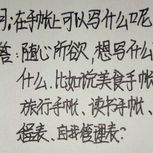 问:在手帐上可以写什么呢
答:随心所欲,想写什么
什么.比如说美食手帐
旅行手帐、读书手帐、
程表、自我管理表?